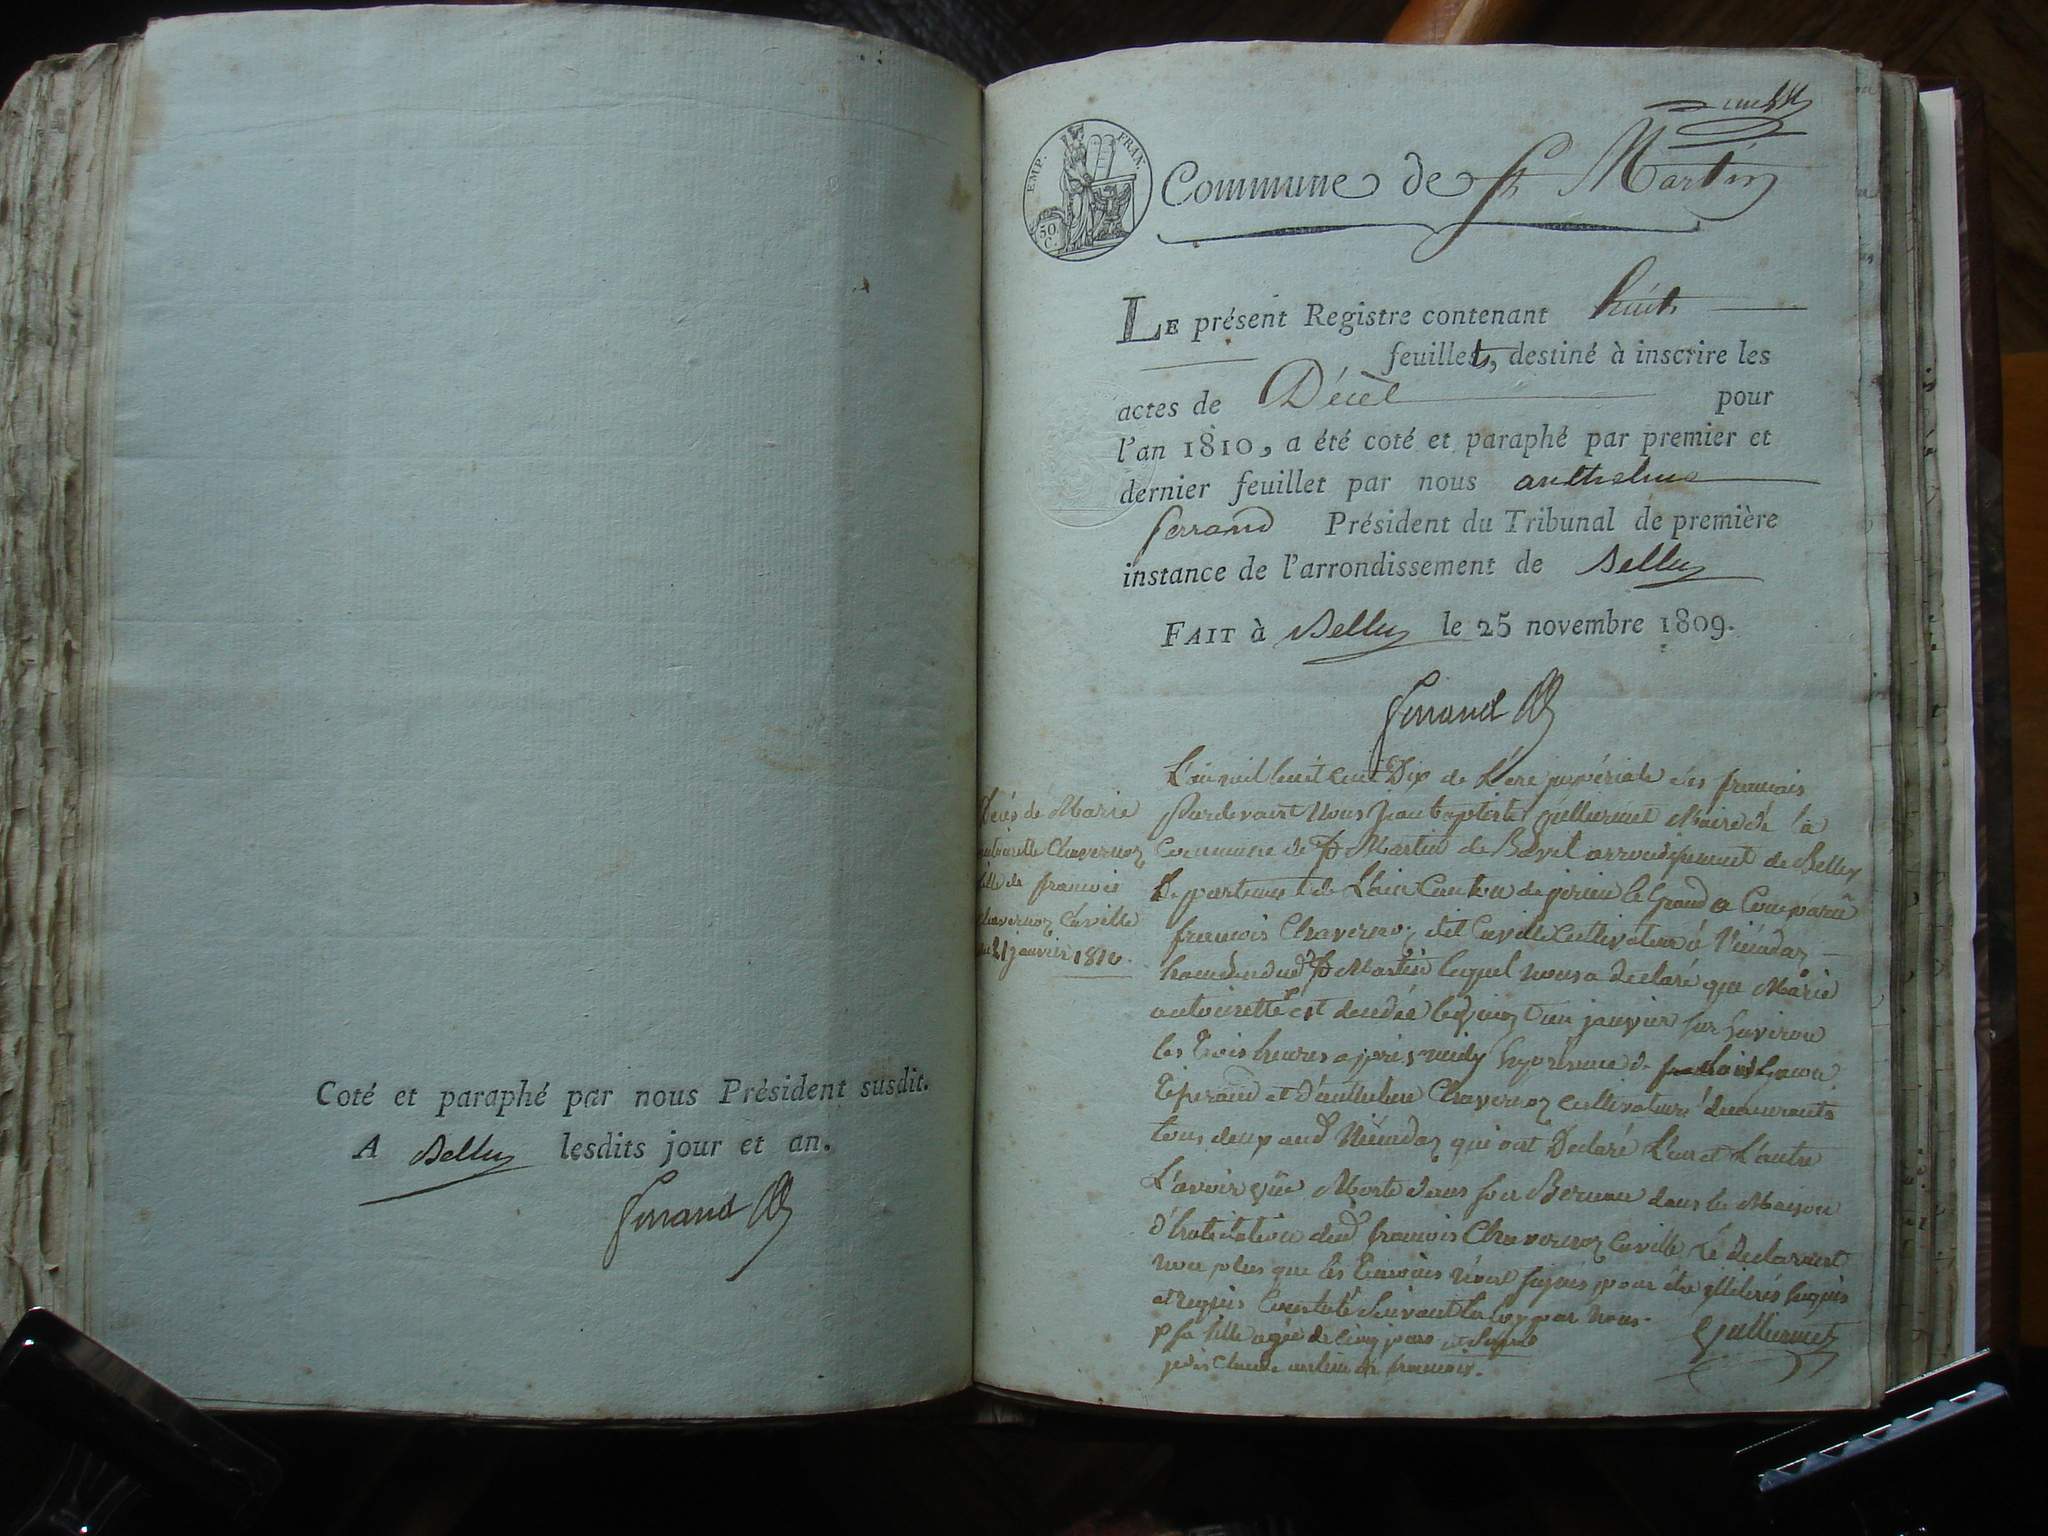 Coté et paraphé par nous Président susdit.
A Belley lesdits jour et an.
Ferrand
EMP. FRAN.
50 C.
Commune de St Martin
LE présent Registre contenant huit
feuillets, destiné à inscrire les
actes de Décès pour
l'an 1810, a été coté et paraphé par premier et
dernier feuillet par nous anthelme
ferrand Président du Tribunal de première
instance de l'arrondissement de Belley
FAIT à Belley le 25 novembre 1809.
Ferrand
Décés de Marie
antoinette Chavernoz
fille de francois
Chavernoz Cuville
du 21 janvier 1810.
L'an mil huit cent Dix de L'ere impériale des francais
Pardevant Nous jean baptiste Maire de la
Commune de St Martin de Bavel arrondissement de Belley
Departement de L'ain Canton de le Grand a Comparu
francois Chavernoz dit Cuville Cultivateur à
St Martin lequel nous a declaré que Marie
antoinette est decedée le vingt un janvier sur Lenviron
les trois heures après midy
et d'anthelme Chavernoz cultivateurs demeurants
tous deux qui ont Declaré L'un et L'autre
L'avoir vüe Morte dans son Berceau dans la Maison
d'habitation dud francois Chavernoz Cuville Le declarant
non plus que les temoins n'ont pour être
et requis Constaté Suivant la loy par Nous.
sa fille agée de cinq jours
Claude de francois.